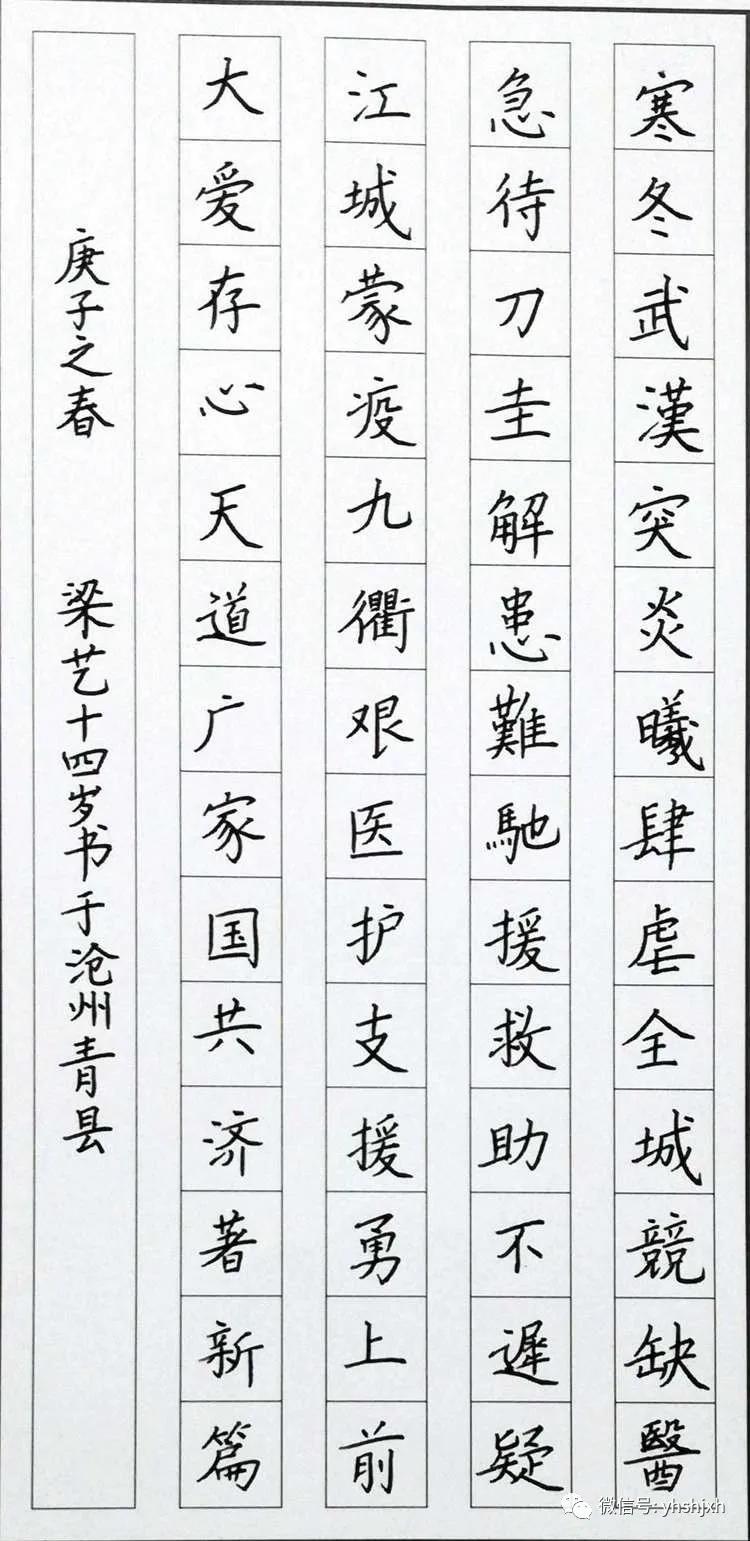 寒冬武漢突炎曦肆虐全城競缺醫
急待刀圭解患難馳援救助不遲疑
江城蒙疫九衢艰医护支援勇上前
大爱存心天道广家国共济著新篇
庚子之春 梁艺十四岁书于沧州青县
微信号: yhshjxh